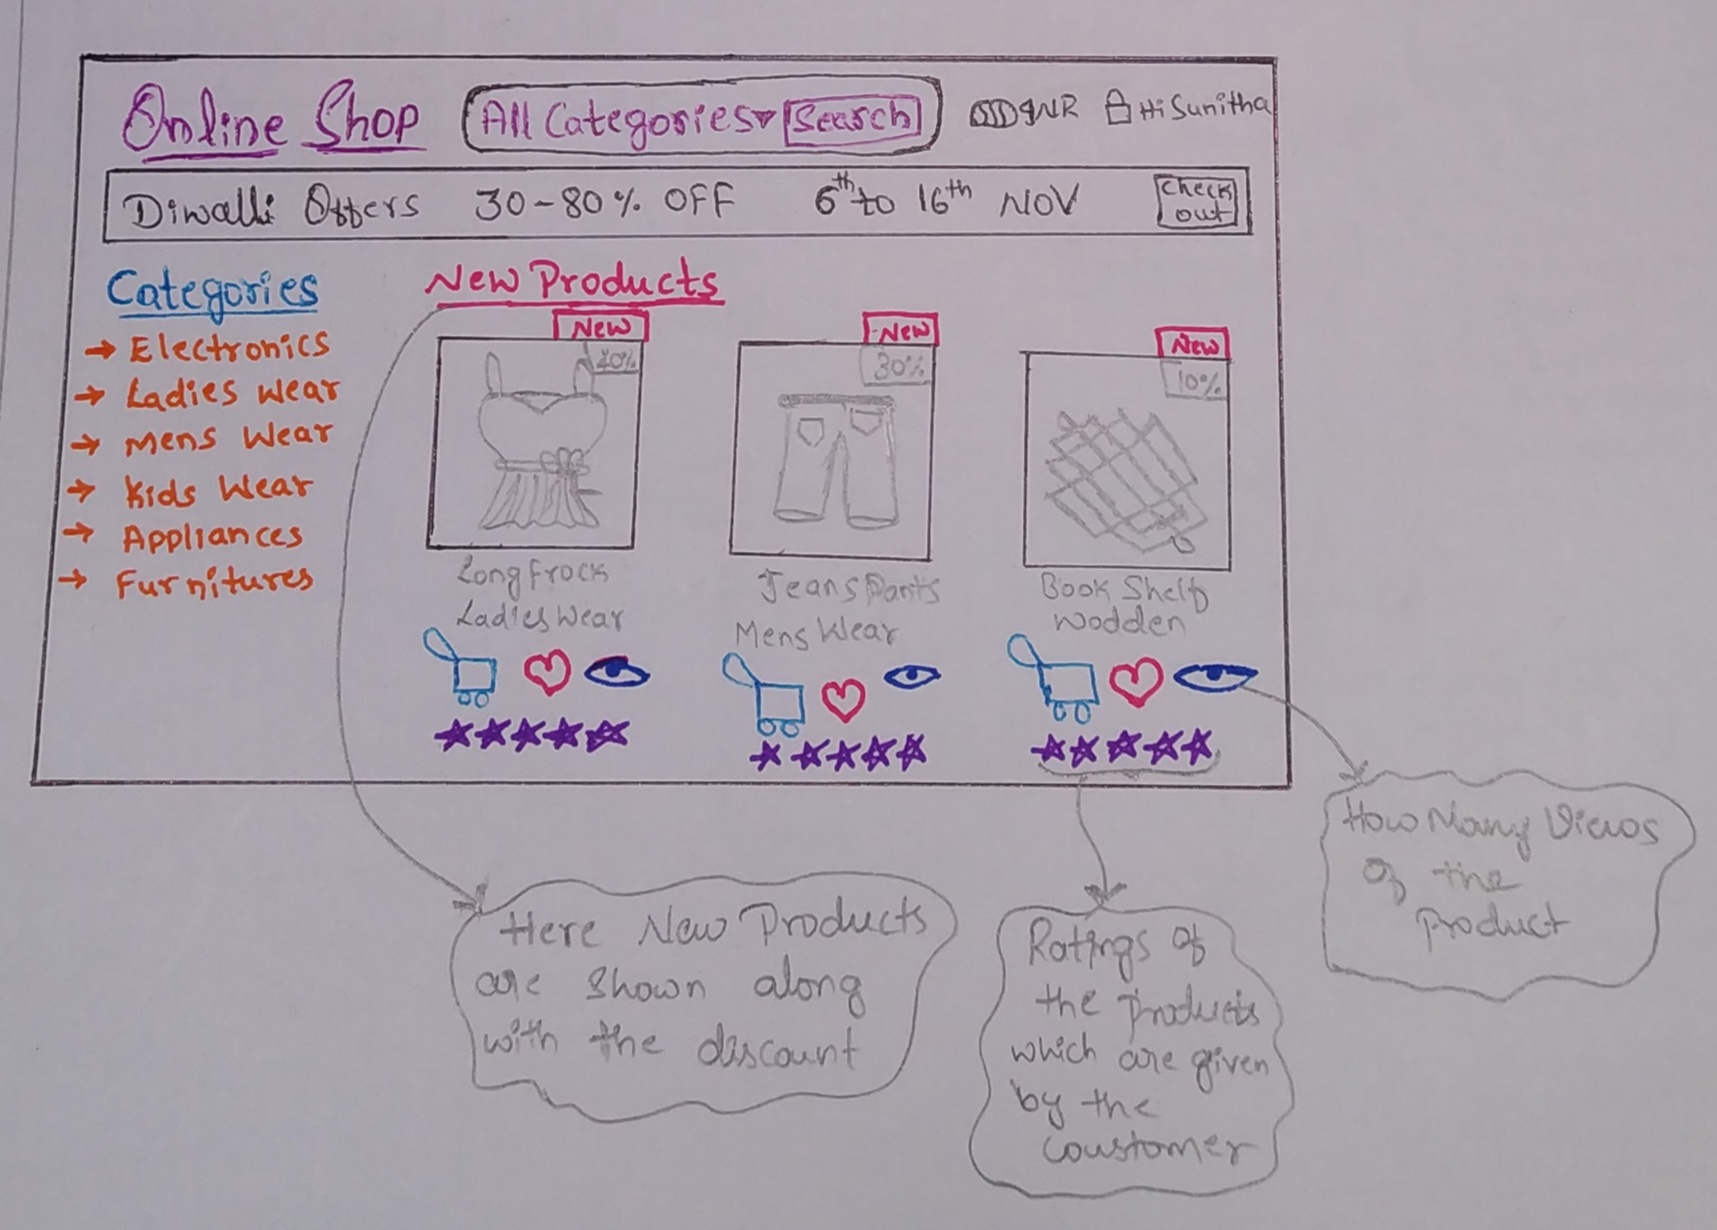 Online Shop All Categories Search INR Hi Sunitha
Diwalli Offers 30-80% OFF 6th to 16th NOV Check
out
Categories
Electronics
Ladies Wear
Mens Wear
Kids Wear
Appliances
Furnitures
New Products
New
40%
Long Frock
Ladies Wear
New
30%
Jeans Pants
Mens Wear
New
10%
Book Shelf
Wodden
Here New Products
are shown along
with the discount
Ratings of
the products
which are given
by the
coustomer
How Many Views
of the
Product